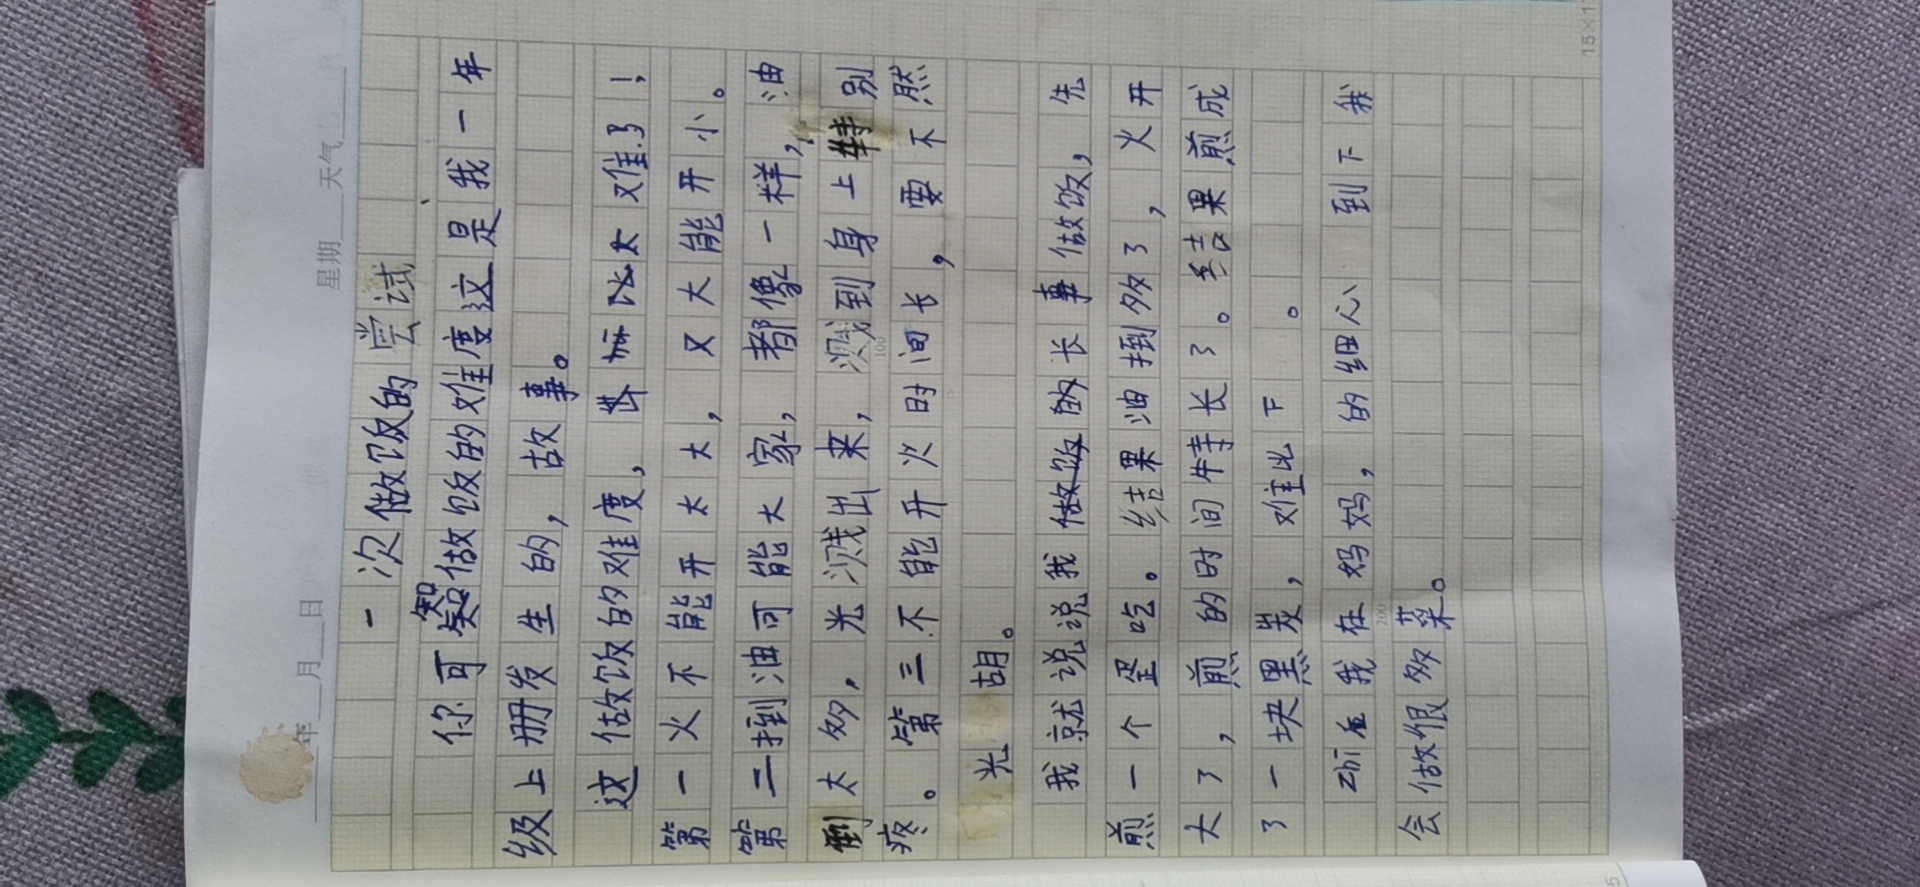 年 月 日 星期 天气
一次做饭的尝试
你可知做饭的难度这是我一年
级上册发生的,故事。
这做饭的难度,比太难了!
第一火不能开太大,又大能开小。
第二捯油可能大家,都像一样,油
倒太多,光溅出来,溅到身上特别
疼。第三不能开火时间长,要不然
光胡。
我就说说我的长事做饭,先
煎一个蛋吃。结果油捯多了,火开
大了,煎的时间特长了。结果煎成
了一块黑炭,难比下。
zhi 在我在妈妈,的细心 到下我
会做很多菜。
100
200